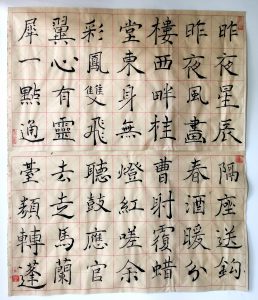 昨夜星辰
昨夜風畫
樓西畔桂
堂東身無
彩鳳雙飛
翼心有靈
犀一點通
隔座送鈎
春酒暖分
曹射覆蜡
燈紅嗟余
聽鼓應官
去走馬蘭
臺類轉蓬